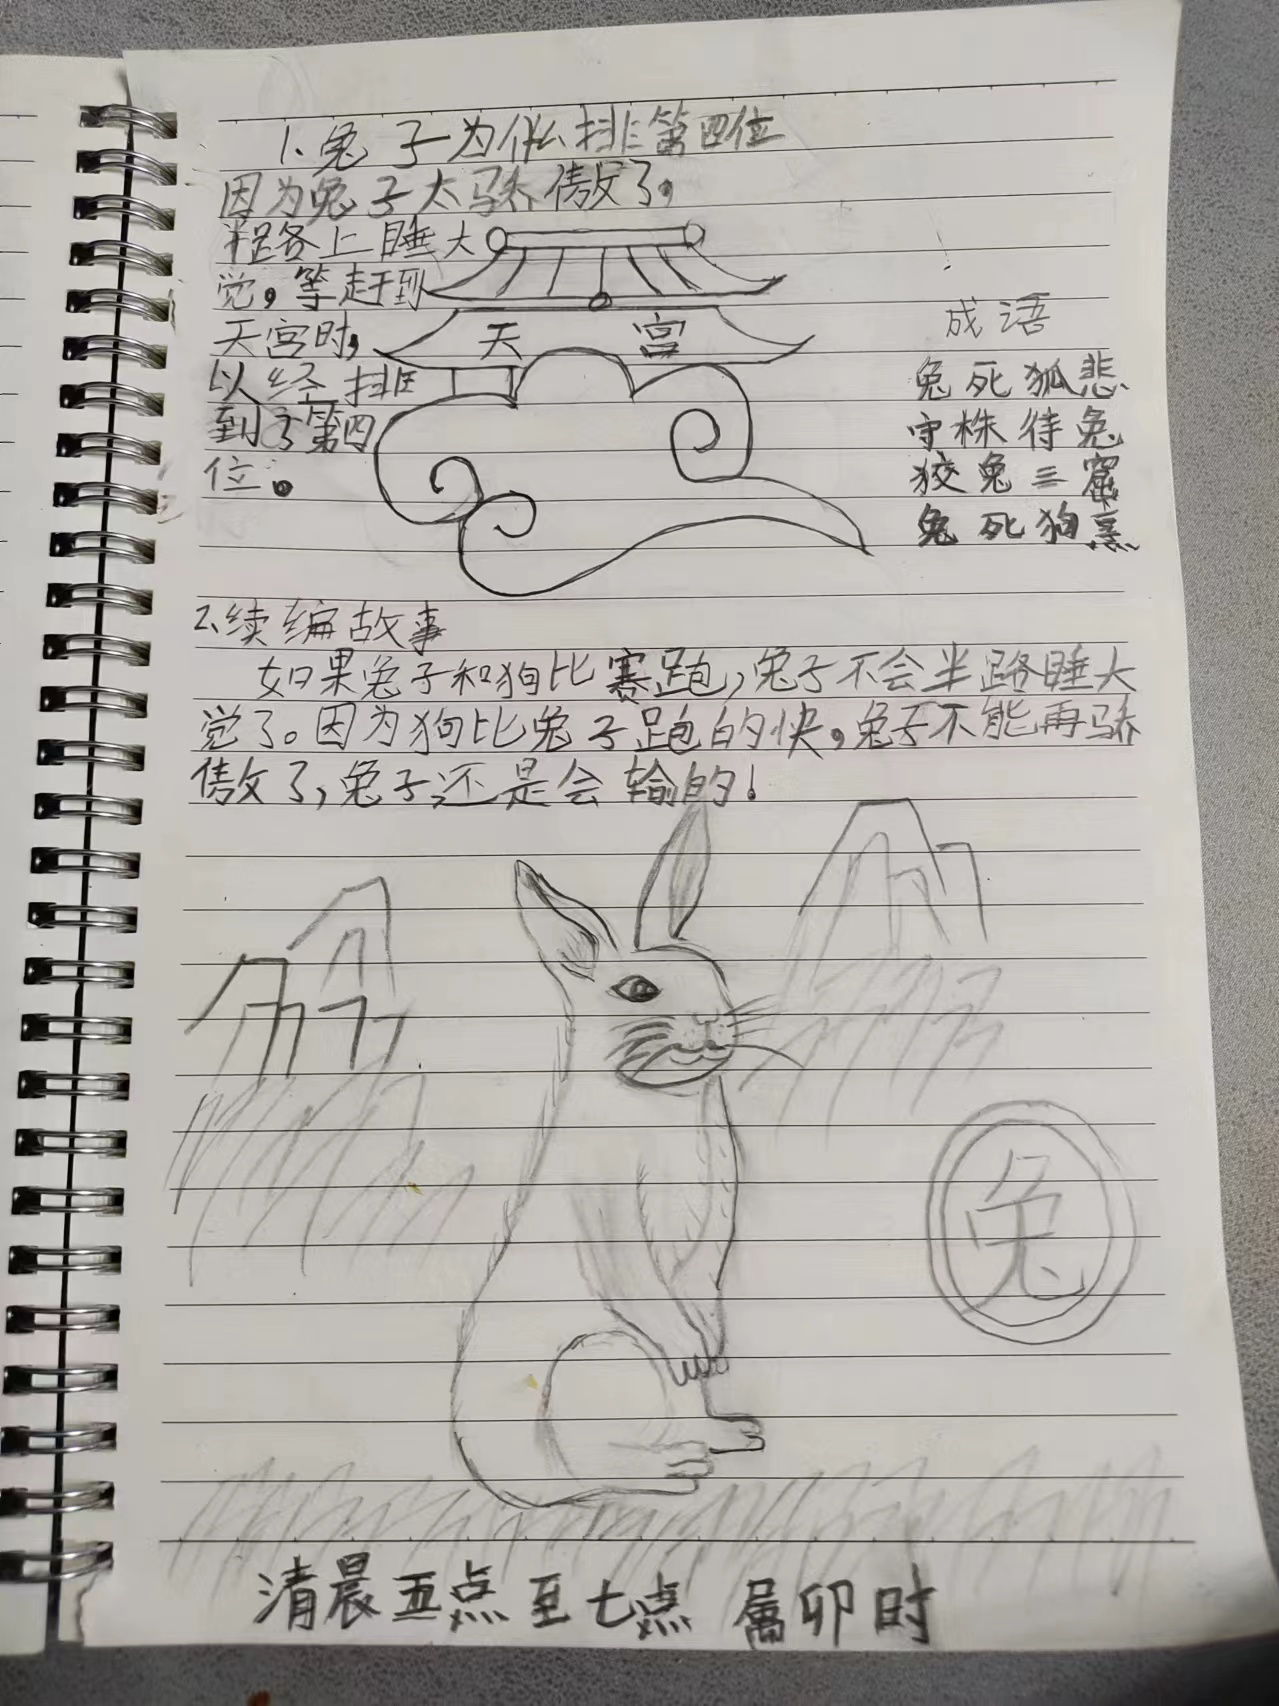 1、兔子为什么排第四位
因为兔子太骄傲了,
半路上睡大
觉,等赶到
天宫时,
以经排
到了第四
位。
天宫
成语
兔死狐悲
守株待兔
狡兔三窟
兔死狗烹
2、续编故事
如果兔子和狗比赛跑,兔子不会半路睡大
觉了。因为狗比兔子跑的快,兔子不能再骄
傲了,兔子还是会输的!
兔
清晨五点至七点 属卯时